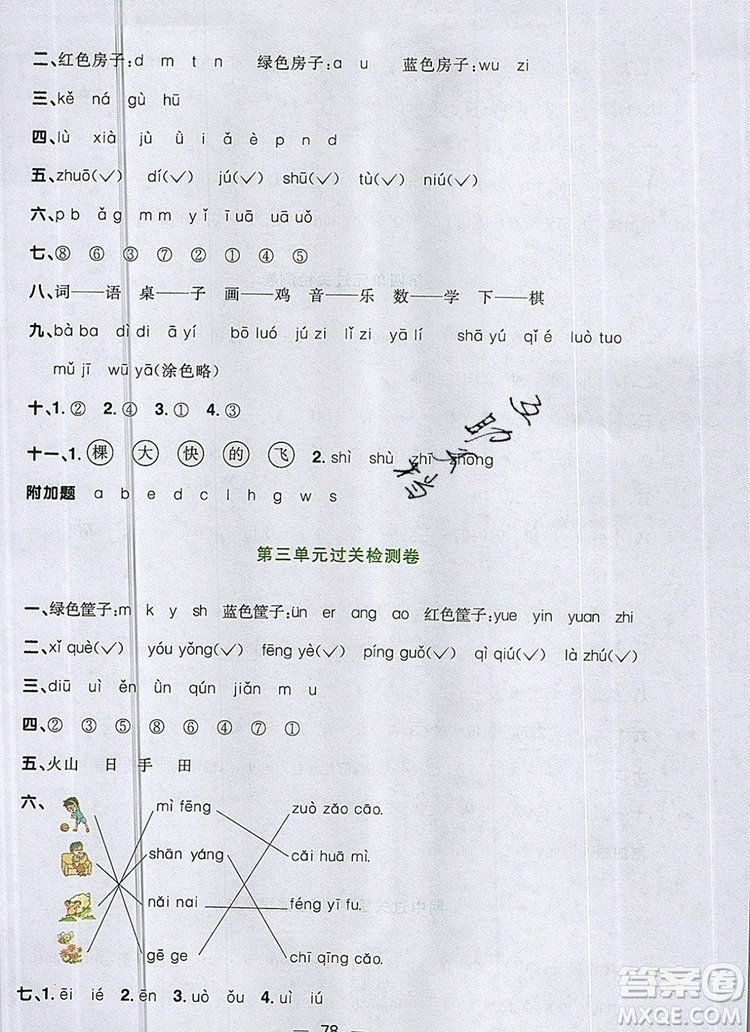 二、红色房子:d m t n 绿色房子:ɑ u 蓝色房子:wu zi
三、kě ná gù hū
四、lù xià jù ǜ ì ǎ è p n d
五、zhuō(✓) dí(✓) jú(✓) shū(✓) tù(✓) niú(✓)
六、p b ǎ g m m y ǐ t uā u ā u ǒ
七、⑧ ⑥ ③ ⑦ ② ① ④ ⑤
八、词——语 桌——子 画——鸡 音——乐 数——学 下——棋
九、bà ba dì di ā yí bō luó jú zi lǐ zi yā li shā yú qǐ é luò tuo
mǔ jī wū yā(涂色略)
十、1.② 2.④ 3.① 4.③
十一、1.棵 大 快 的 飞 2.shì shù zhī zhōng
附加题 a b e d c l h g w s
互助文档
第三单元过关检测卷
一、绿色筐子:m k y sh 蓝色筐子:ün er ang ao 红色筐子:yue yin yuan zhi
二、xǐ què(✓) yóu yǒng(✓) fēng yè(✓) píng guǒ(✓) qì qiú(✓) là zhú(✓)
三、diū uì ěn ùn qún jiǎn m u
四、② ③ ⑤ ⑧ ⑥ ④ ⑦ ①
五、火山 日 手 田
六、
mì fēng zuò zǎo cāo.
shān yáng cǎi huā mì.
nǎi nai féng yī fu.
gē ge chī qīng cǎo.
七、1.ēi ié 2.ēn 3.uò ǒu 4.uì iú
— 78 —
答案圈
MXQE.COM